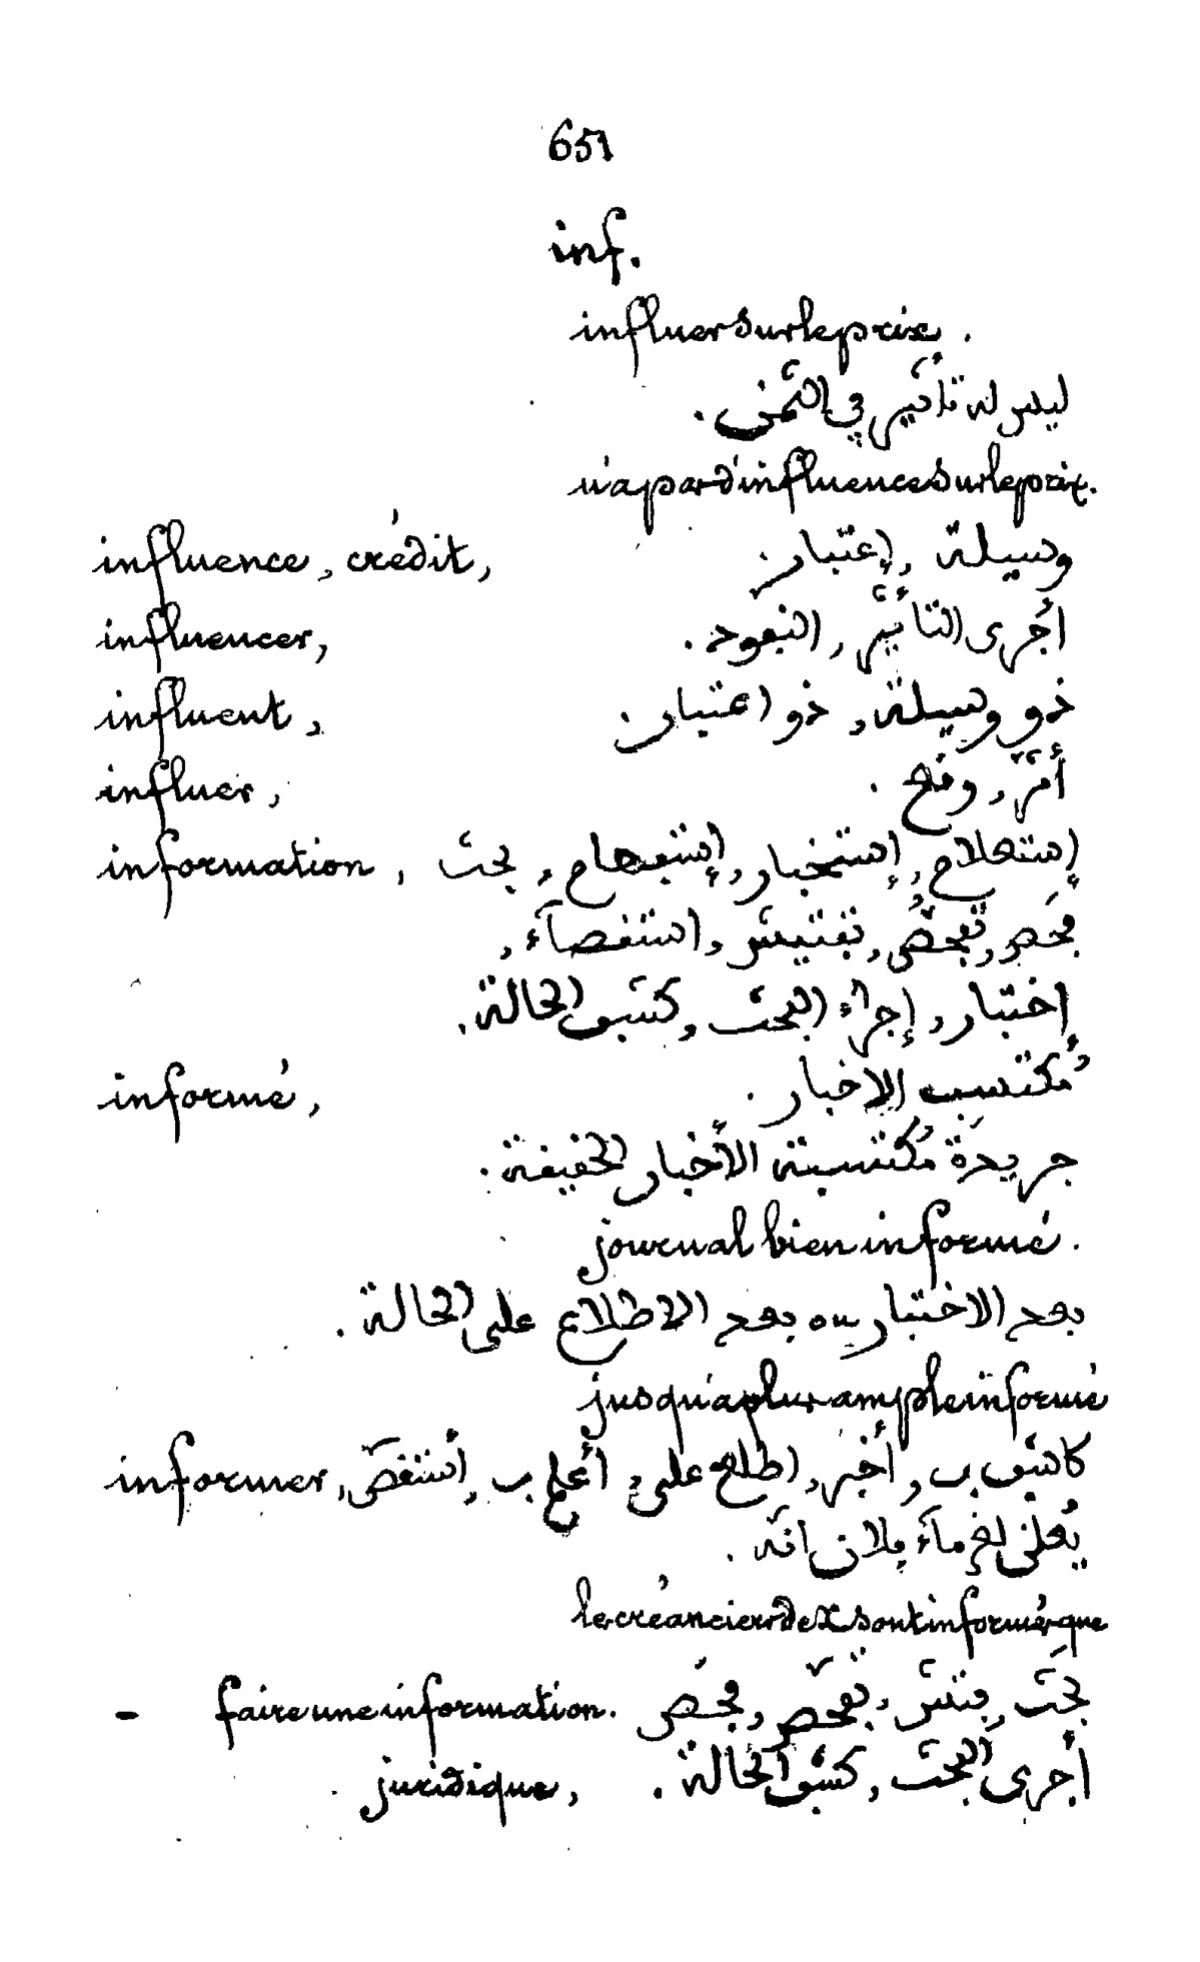 651
inf.
influer sur le prix.
ليس له تأثير في الثمن.
n'a pas d'influence sur le prix.
influence, crédit, وسيلة, إعتبار.
influencer, أجرى التأثير, النفوذ.
influent, ذو وسيلة, ذو اعتبار.
influer, أثّر, وقع.
information, إستعلام, إستخبار, إستفهام, بحث
فحص, تفحّص, تفتيش, استقصآء,
إختبار, إجراء البحث, كشف الحالة.
informé, مُكتسب الاخبار.
جريدة مُكتسبة الأخبار الحقيقة.
journal bien informé.
بعد الاختبار ou بعد الاطلاع على الحالة.
jusqu'à plus ample informé
informer, كاشف ب, أخبر, اطلع على, أعلم ب, أستقصى,
يُعلن لغرمآء فلان انّه.
les créanciers de X sont informés que
- faire une information. بحث, فتّش, تفحّص, فحص
juridique, أجرى البحث, كشف الحالة.